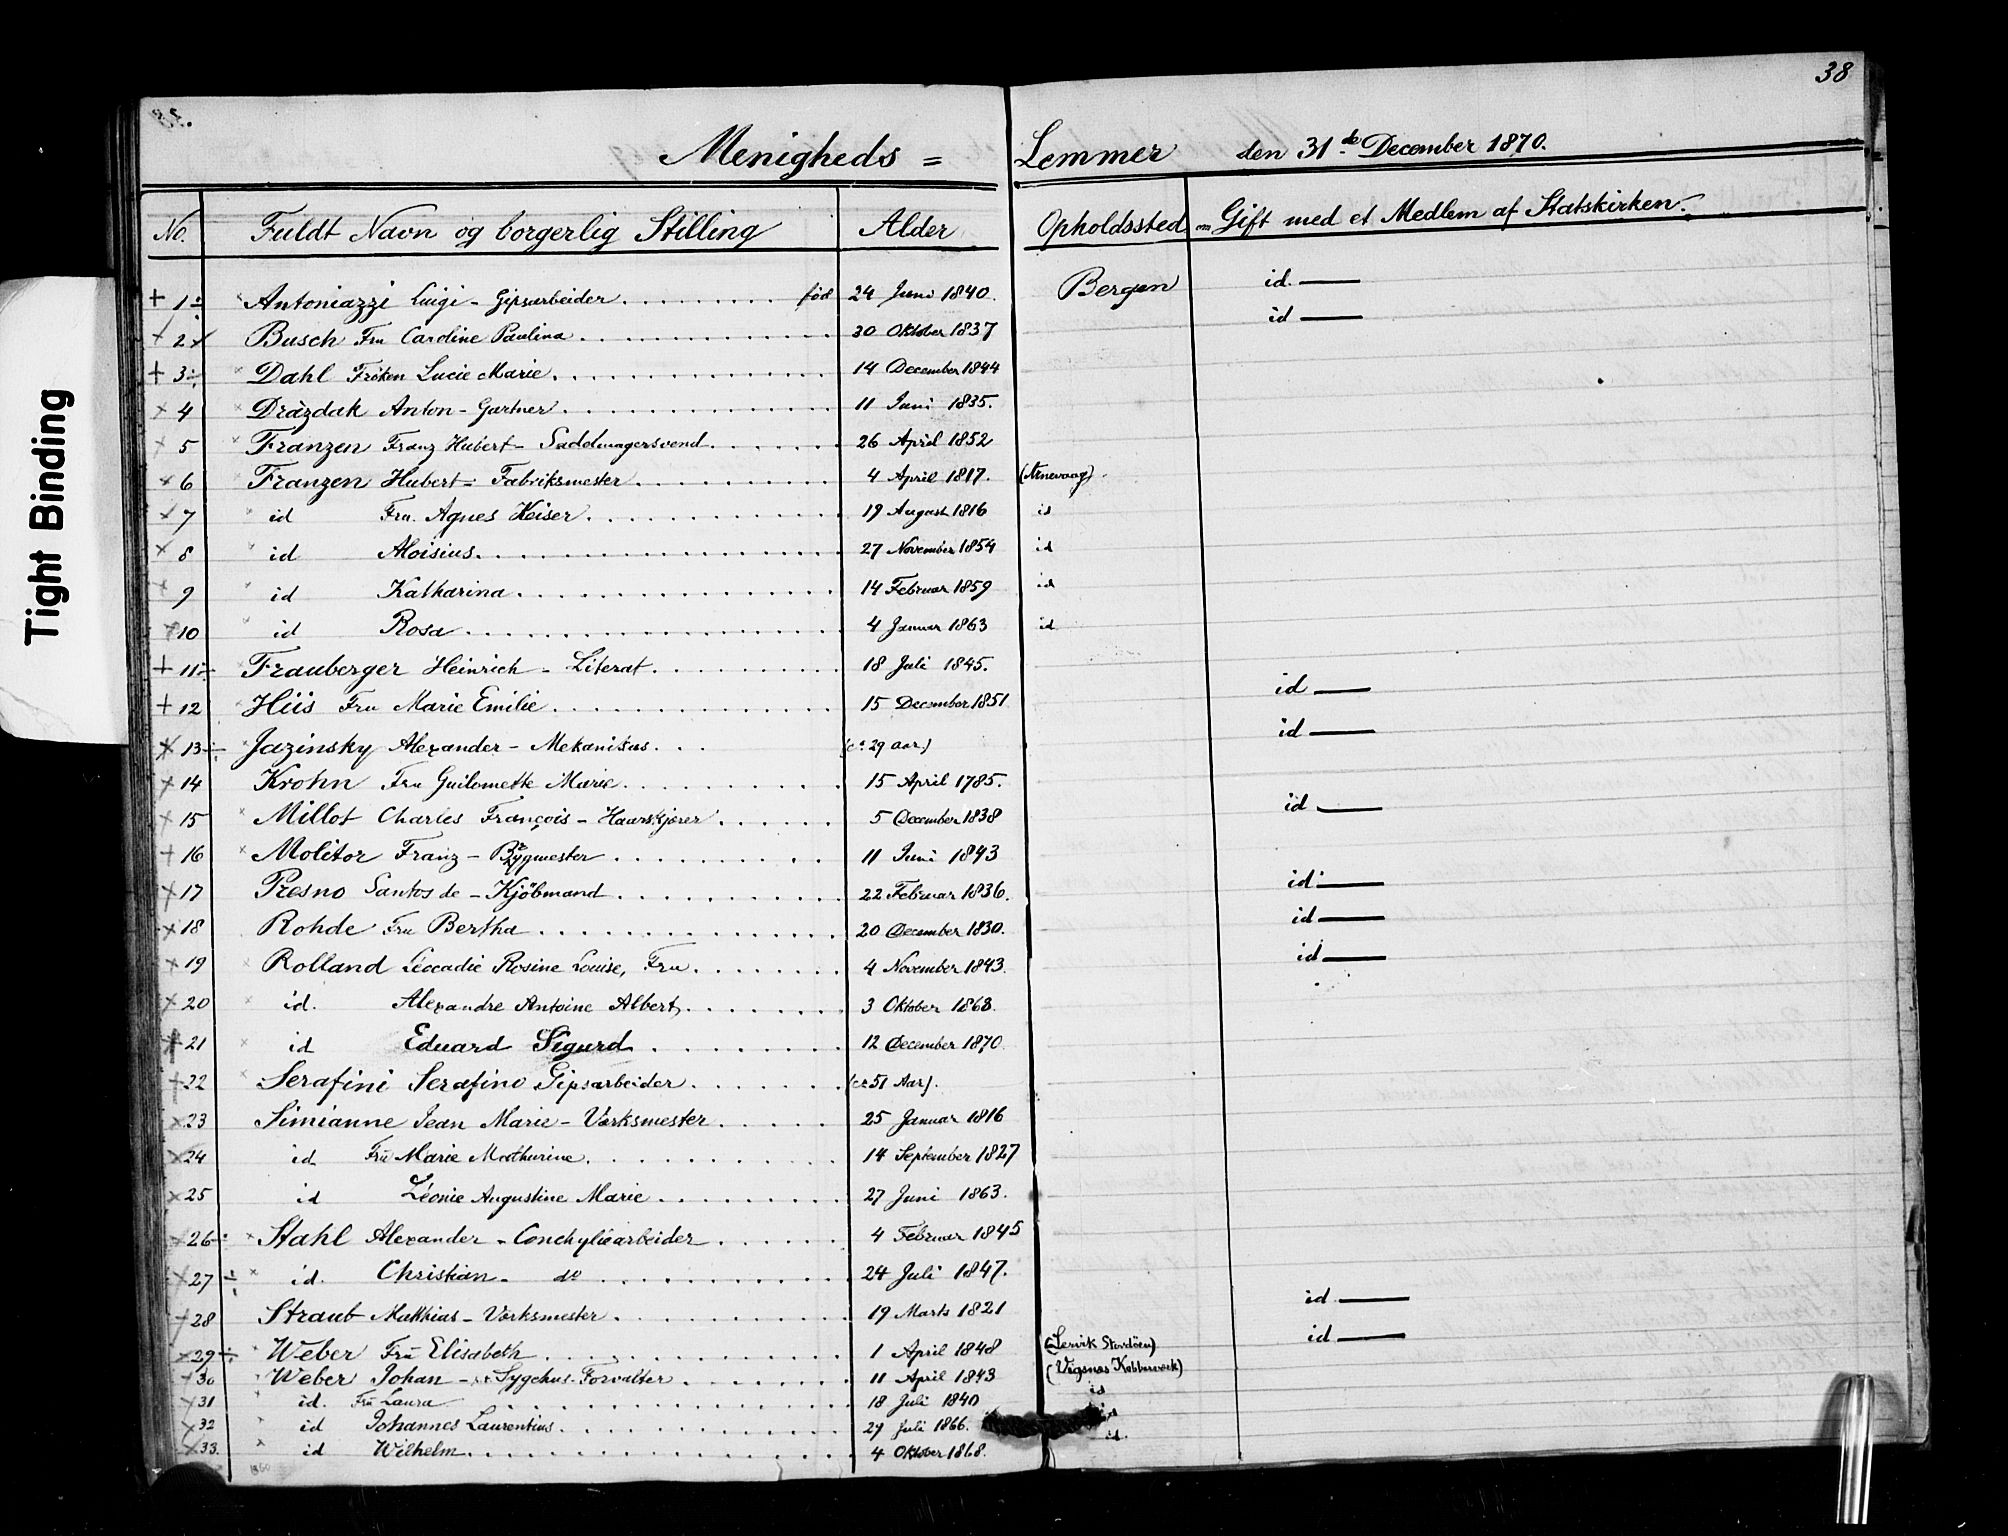 38
Menigheds = Lemmer den 31de December 1870.
No. Fuldt Navn og borgerlig Stilling Alder Opholdssted om Gift med et Medlem af Statskirken.
+ 1 ÷ × Antoniazzi Luigi - Gipsarbeider . . . . . . . . . fød 24 Juni 1840. Bergen id. —
+ 2 Busch Fru Caroline Paulina . . . . . . . . . . . . . 30 Oktober 1837 id —
+ 3 ÷ × Dahl Fröken Lucie Marie . . . . . . . . . . . . . . 14 December 1844
× 4 × Dràzdak Anton - Gartner . . . . . . . . . . . . . . 11 Juni 1835.
× 5 × Franzen Franz Hubert - Sadelmagersvend . . . . . . . 26 April 1852
× 6 Franzen Hubert - Fabriksmester . . . . . . . . . . 4 April 1817. (Arnevaag).
× 7 × id Fru. Agnes Keiser . . . . . . . . . . . . . 19 August 1816 id
× 8 × id Aloisius . . . . . . . . . . . . . . . . . 27 November 1854 id
× 9 × id Katharina . . . . . . . . . . . . . . . . 14 Februar 1859 id
× 10 × id Rosa . . . . . . . . . . . . . . . . . . 4 Januar 1863 id
+ 11 ÷ × Frauberger Heinrich - Literat . . . . . . . . . . 18 Juli 1845.
+ 12 × Hiis Fru Marie Emilie . . . . . . . . . . . . . . 15 December 1851 id —
× 13 ÷ × Jazinsky Alexander - Mekanikus . . . (ca 29 aar) id —
× 14 Krohn Fru Guilomette Marie . . . . . . . . . . 15 April 1785.
× 15 × Millot Charles François - Haarskjærer . . . . . . 5 December 1838 id —
+ 16 × Molitor Franz - Bygmester . . . . . . . . . 11 Juni 1843
× 17 Presno Santos de - Kjöbmand . . . . . . . . . . . 22 Februar 1836. id —
× 18 Rohde Fru Bertha . . . . . . . . . . . . . . . 20 December 1830. id —
× 19 × Rolland Léocadie Rosine Louise, Fru . . . . . . . . 4 November 1843. id —
× 20 × id. Alexandre Antoine Albert . . . . . . . . 3 Oktober 1868.
21 × id Eduard Sigurd . . . . . . . . . 12 December 1870.
+ 22 × Serafini Serafino Gipsarbeider . . . . . . . . (ca 51 Aar).
× 23 Simianne Jean Marie - Værksmester . . . . . . 25 Januar 1816
× 24 id Fru Marie Mathurine . . . . . . . . . . . 14 September 1827
× 25 id Léonie Augustine Marie . . . . . . . . . 27 Juni 1863.
× 26 ÷ × Stahl Alexander - Conchyliearbeider . . . . . . 4 Februar 1845
× 27 ÷ × id. Christian - do . . . . . . . . . . . 24 Juli 1847.
+ 28 Straub Matthias - Værksmester . . . . . . . . . . 19 Marts 1821 id —
× 29 ÷ × Weber Fru Elisabeth . . . . . . . . . . . . . 1 April 1848 (Lervik Stordöen) id —
× 30 × Weber Johan - Sygehus-Forvalter . . . . . . . . 11 April 1843 (Vigsnæs Kobberverk)
× 31 × id. Fru Laura . . . . . . . . . . . . . . . . 18 Juli 1840 id
× 32 × id Johannes Laurentius . . . . . . . . . . . . . 29 Juli 1866. id
× 33. × id Wilhelm . . . . . . . . . . . . . . . . . 4 Oktober 1868. id.
Tight Binding